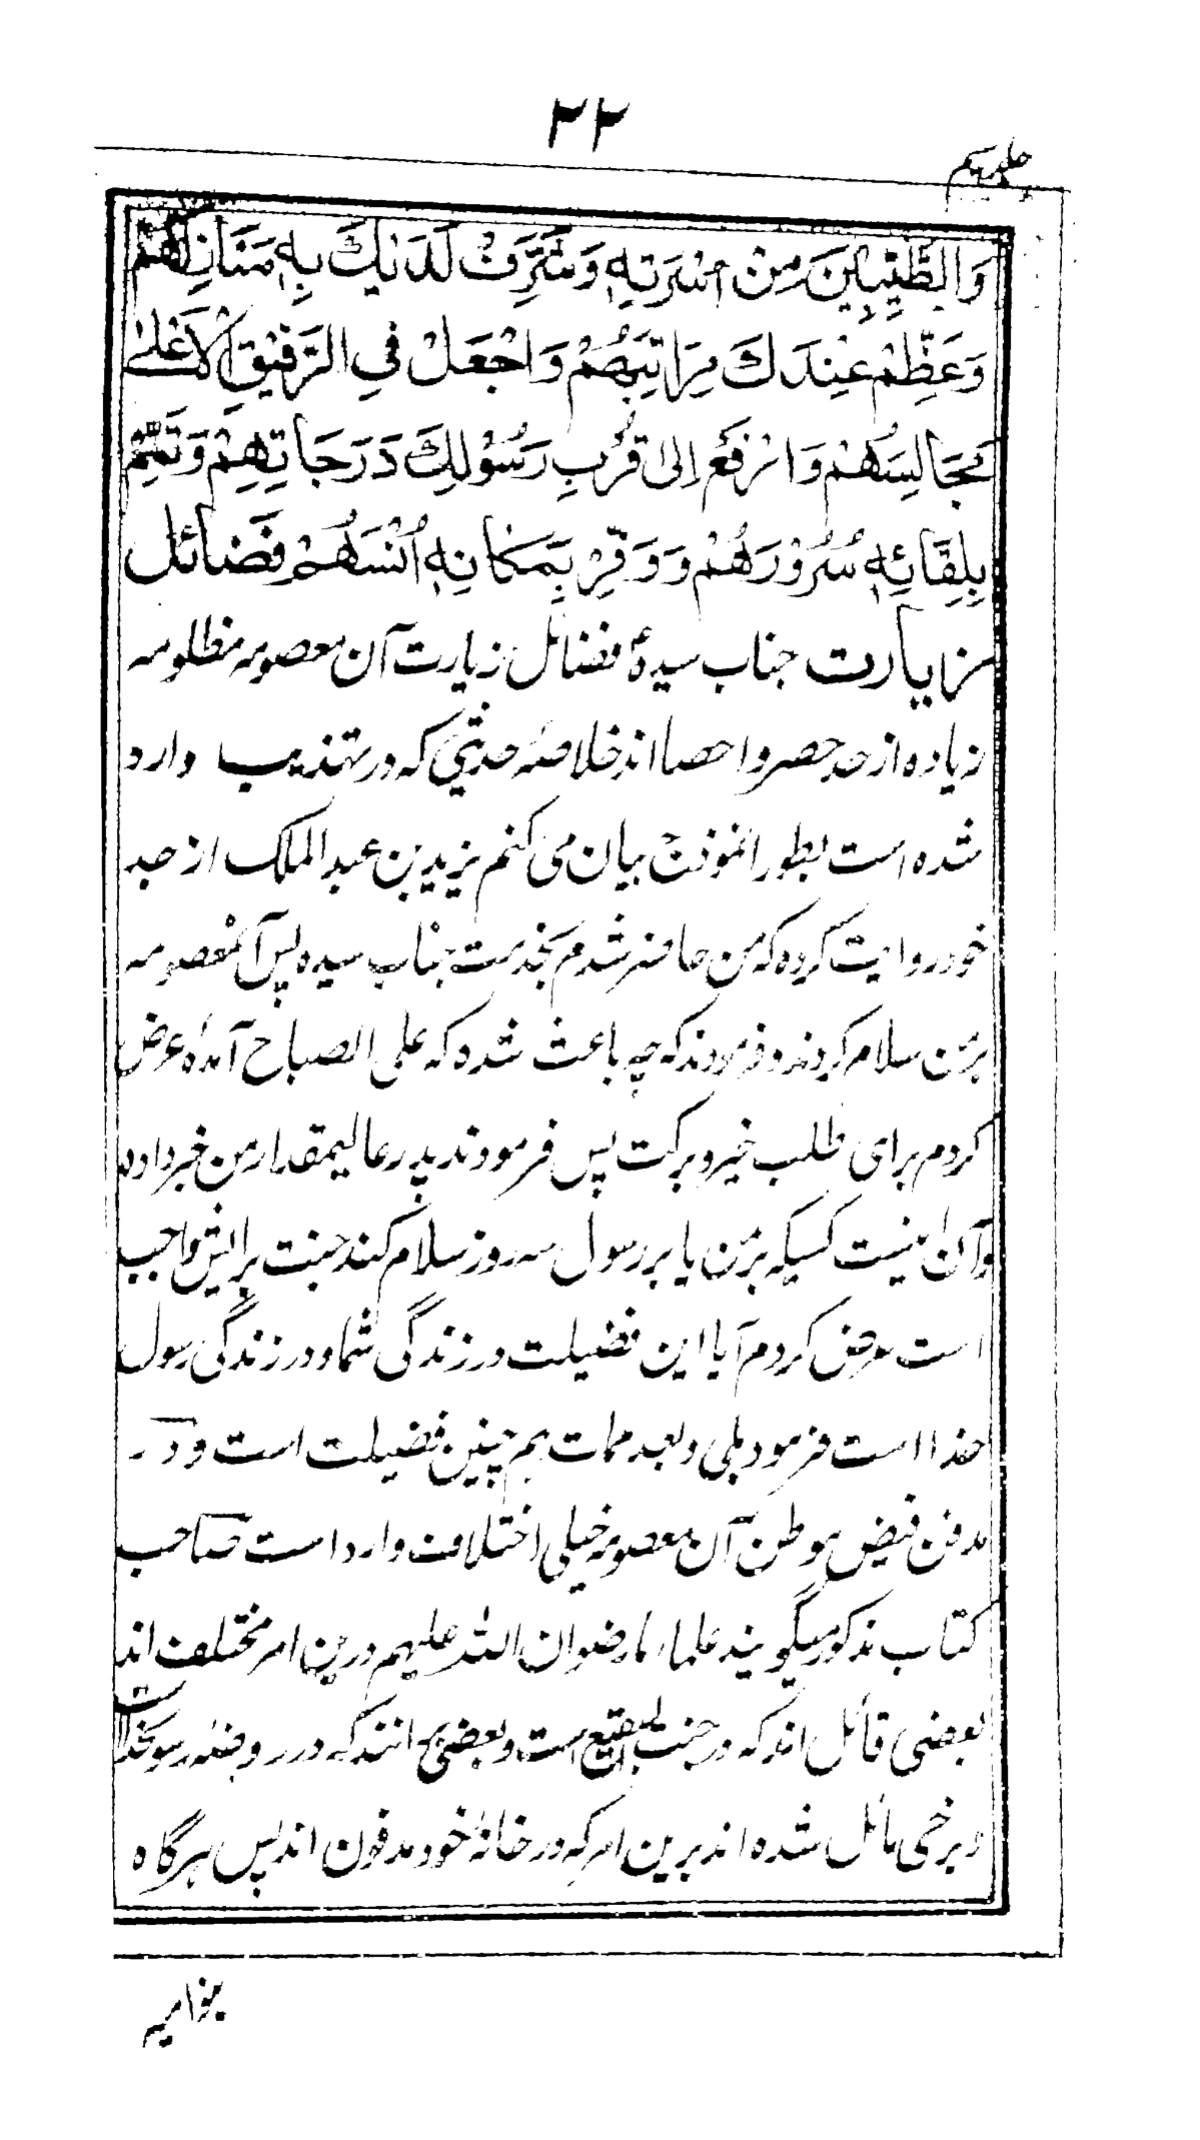 ۲۲
جلد سیم
وَالطَّيِّبِيْنَ مِنْ اُسْرَتِهٖ وَشَرِّفْ لَدَيْكَ بِهٖ مَنَازِلَهُمْ
وَعَظِّمْ عِنْدَكَ مَرَاتِبَهُمْ وَاجْعَلْ فِي الرَّفِيْقِ الْاَعْلٰى
مَجَالِسَهُمْ وَارْفَعْ اِلٰى قُرْبِ رَسُوْلِكَ دَرَجَاتِهِمْ وَتَمِّمْ
بِلِقَائِهٖ سُرُوْرَهُمْ وَوَفِّرْ بِمَكَانِهٖ اُنْسَهُمْ فَضَائل
زیارت جناب سیدهٔ فضائل زیارت آن معصومه مظلومه
زیاده از حد حصر و احصا اند خلاصهٔ حدیثی که در تهذیب وارد
شده است بطور انموذج بیان می کنم یزید بن عبد الملک از جد
خود روایت کرده که من حاضر شدم بخدمت جناب سیده پس آنمعصومه
بر من سلام کردند و فرمودند که چه باعث شده که علی الصباح آمدهٔ عرض
کردم برای طلب خیر و برکت پس فرمودند پدر عالیمقدار من خبر داده
و آن اینست کسیکه بر من یا بر رسول سه روز سلام کند جنت برایش واجب
است عرض کردم آیا این فضیلت در زندگی شما و در زندگی رسول
خدا است فرمود بلی و بعد ممات هم چنین فضیلت است و در
مدفن فیض موطن آن معصومه خیلی اختلاف وارد است صاحب
کتاب مذکور میگویند علماء ما رضوان الله علیهم درین امر مختلف اند
بعضی قائل اند که در جنت البقیع است و بعضی بر انند که در روضهٔ رسولخدا است
و برخی مائل شده اند برین امر که در خانهٔ خود مدفون اند پس هرگاه
بخواهد